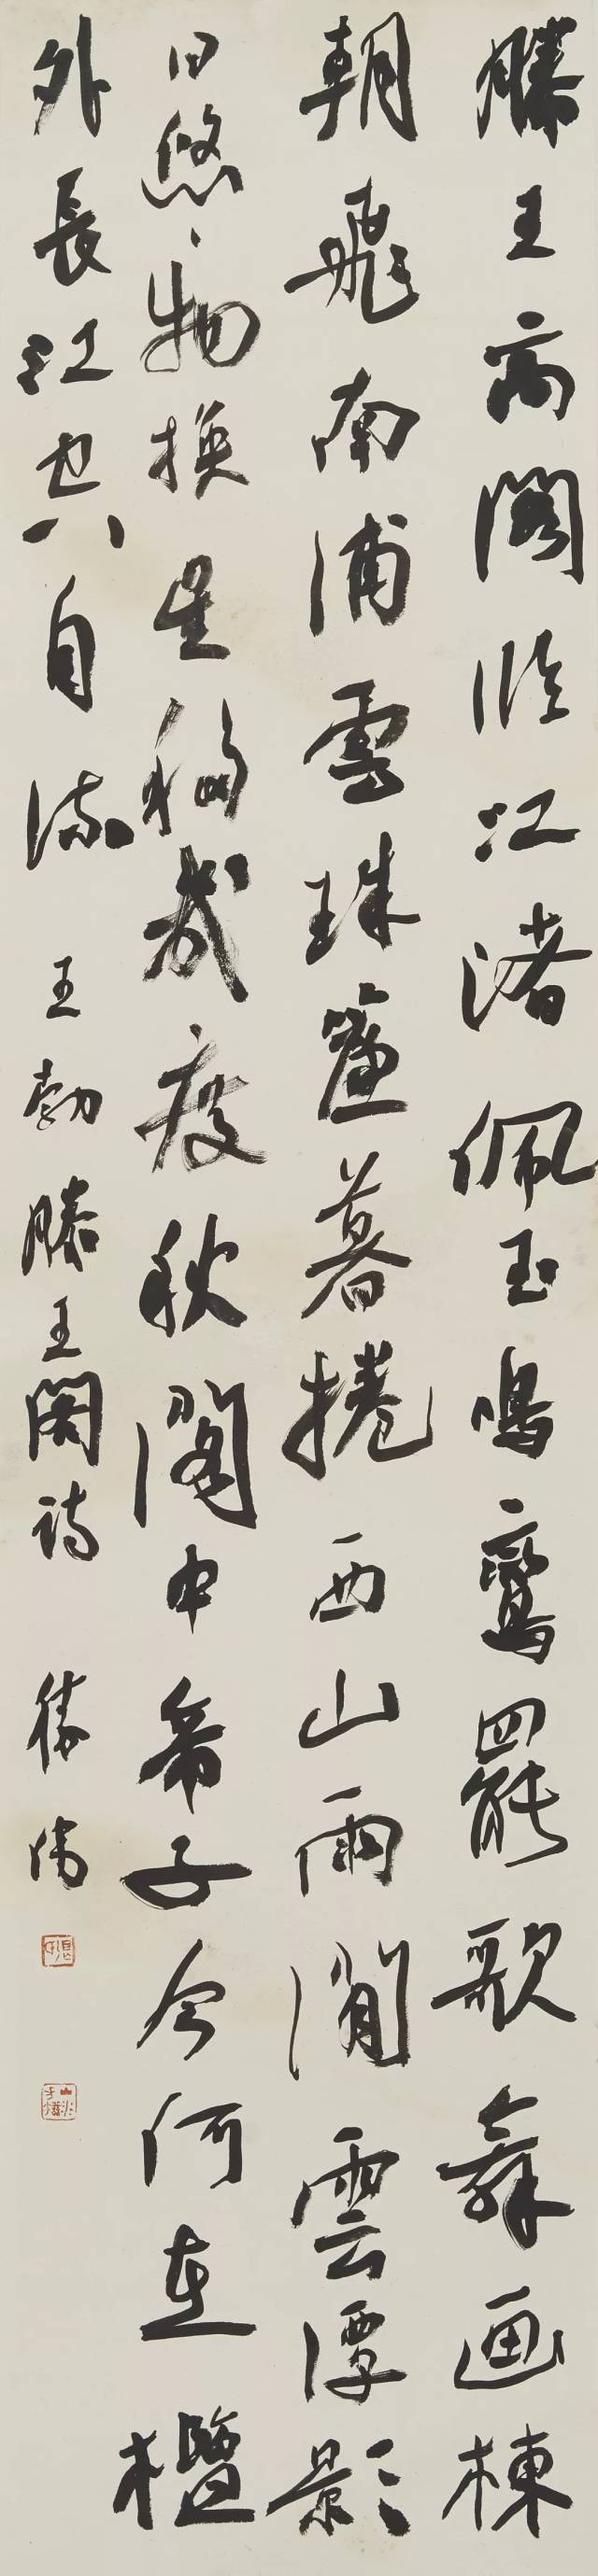 滕王高閣临江渚佩玉鳴鸞罷歌舞画棟
朝飛南浦雲珠簾暮捲西山雨閒雲潭影
日悠〻物換星移幾度秋閣中帝子今何在檻
外長江空自流 王勃滕王閣詩 勝偉